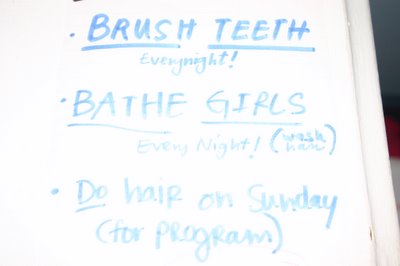 · BRUSH TEETH
Everynight!
· BATHE GIRLS
Every Night! (wash hair)
· Do hair on Sunday
(for program)